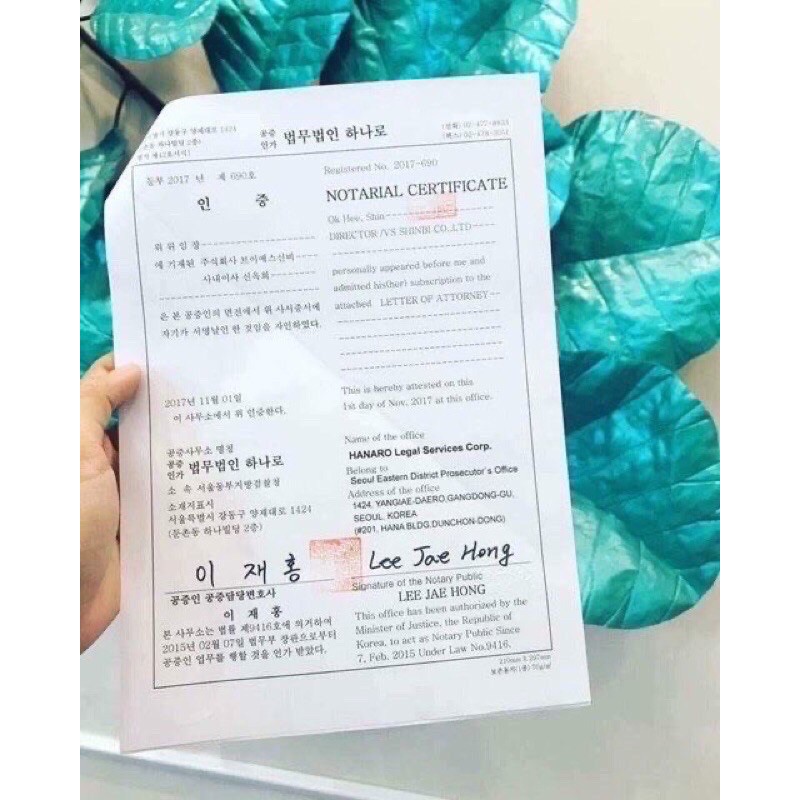 강동구 양재대로 1424
하나빌딩 2층)
공증
인가 법무법인 하나로
(전화) 02-477-
(팩스) 02-478-
등부 2017 년 제 690호
인 증
위 위임장
에 기재된 주식회사 브이에스신비
사내이사 신옥희
은 본 공증인의 면전에서 위 사서증서에
자기가 서명날인 한 것임을 자인하였다.
2017년 11월 01일
이 사무소에서 위 인증한다.
공증사무소 명칭
공증
인가 법무법인 하나로
소 속 서울동부지방검찰청
소재지표시
서울특별시 강동구 양재대로 1424
(둔촌동 하나빌딩 2층)
이 재 홍
공증인 공증담당변호사
이 재 홍
본 사무소는 법률 제9416호에 의거하여
2015년 02월 07일 법무부 장관으로부터
공증인 업무를 행할 것을 인가 받았다.
Registered No. 2017-690
NOTARIAL CERTIFICATE
Ok Hee, Shin
DIRECTOR /VS SHINBI CO.,LTD
personally appeared before me and
admitted his(her) subscription to the
attached LETTER OF ATTORNEY
This is hereby attested on this
1st day of Nov. 2017 at this office.
Name of the office
HANARO Legal Services Corp.
Belong to
Seoul Eastern District Prosecutor's Office
Address of the office
1424, YANGJAE-DAERO,GANGDONG-GU,
SEOUL, KOREA
(#201, HANA BLDG.DUNCHON-DONG)
Lee Jae Hong
Signature of the Notary Public
LEE JAE HONG
This office has been authorized by the
Minister of Justice, the Republic of
Korea, to act as Notary Public Since
7, Feb. 2015 Under Law No.9416.
210mm X 297mm
보존용지(1종) 70g/㎡